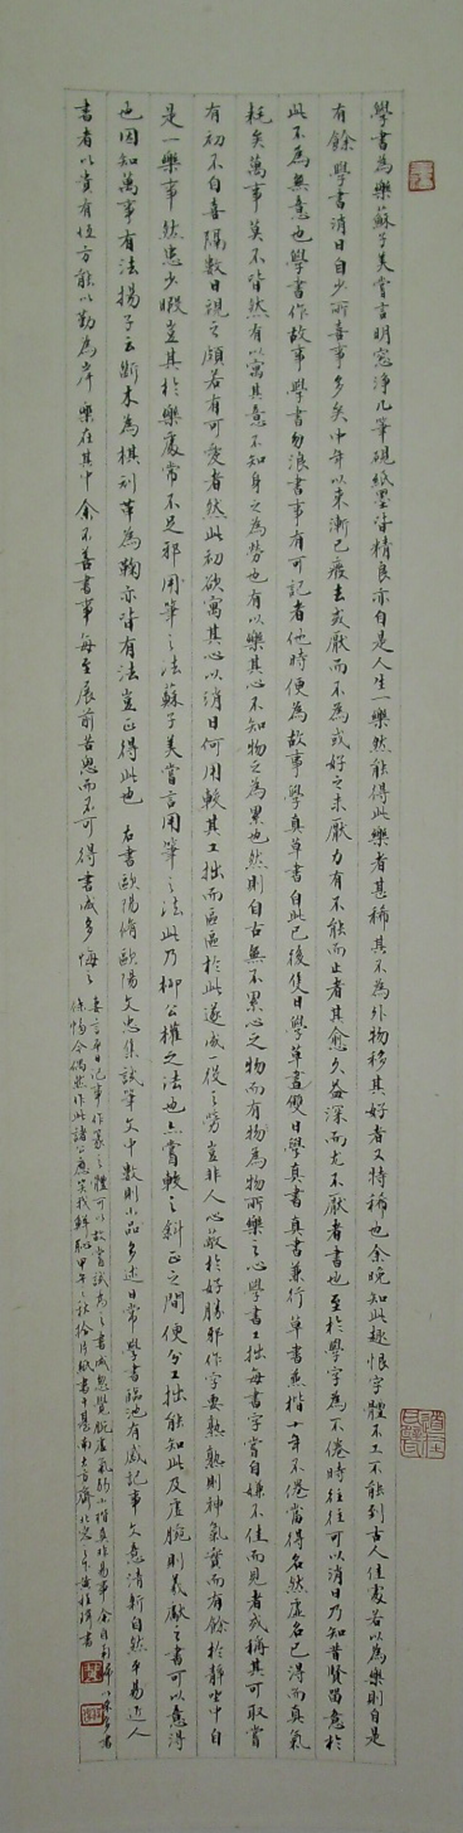 學書為樂蘇子美嘗言明窓淨几筆硯紙墨皆精良亦自是人生一樂然能得此樂者甚稀其不為外物移其好者又特稀也余晚知此趣恨字體不工不能到古人佳處若以為樂則自是
有餘學書消日自少所喜事多矣中年以來漸已廢去或厭而不為或好之未厭力有不能而止者其愈久益深而尤不厭者書也至於學字為不倦時往往可以消日乃知昔賢留意於
此不為無意也學書作故事學書勿浪書事有可記者他時便為故事學真草書自此已後隻日學草書雙日學真書真書兼行草書兼楷十年不倦當得名然虛名已得而真氣
耗矣萬事莫不皆然有以寓其意不知身之為勞也有以樂其心不知物之為累也然則自古無不累心之物而有物為物所樂之心學書工拙每書字嘗自嫌不佳而見者或稱其可取嘗
有初不自喜隔數日視之頗若有可愛者然此初欲寓其心以消日何用較其工拙而區區於此遂成一役之勞豈非人心蔽於好勝邪作字要熟熟則神氣實而有餘於靜坐中自
是一樂事然患少暇豈其於樂處常不足邪用筆之法蘇子美嘗言用筆之法此乃柳公權之法也亦嘗較之斜正之間便分工拙能知此及虛腕則羲獻之書可以意得
也因知萬事有法揚子云斷木為棋刓革為鞠亦皆有法豈正得此也 右書歐陽脩歐陽文忠集試筆文中數則小品多述日常學書臨池有感記事文意清新自然平易近人
書者以貴有恆方能以勤為岸樂在其中余不善書事每至展前苦思而不可得書成多悔之